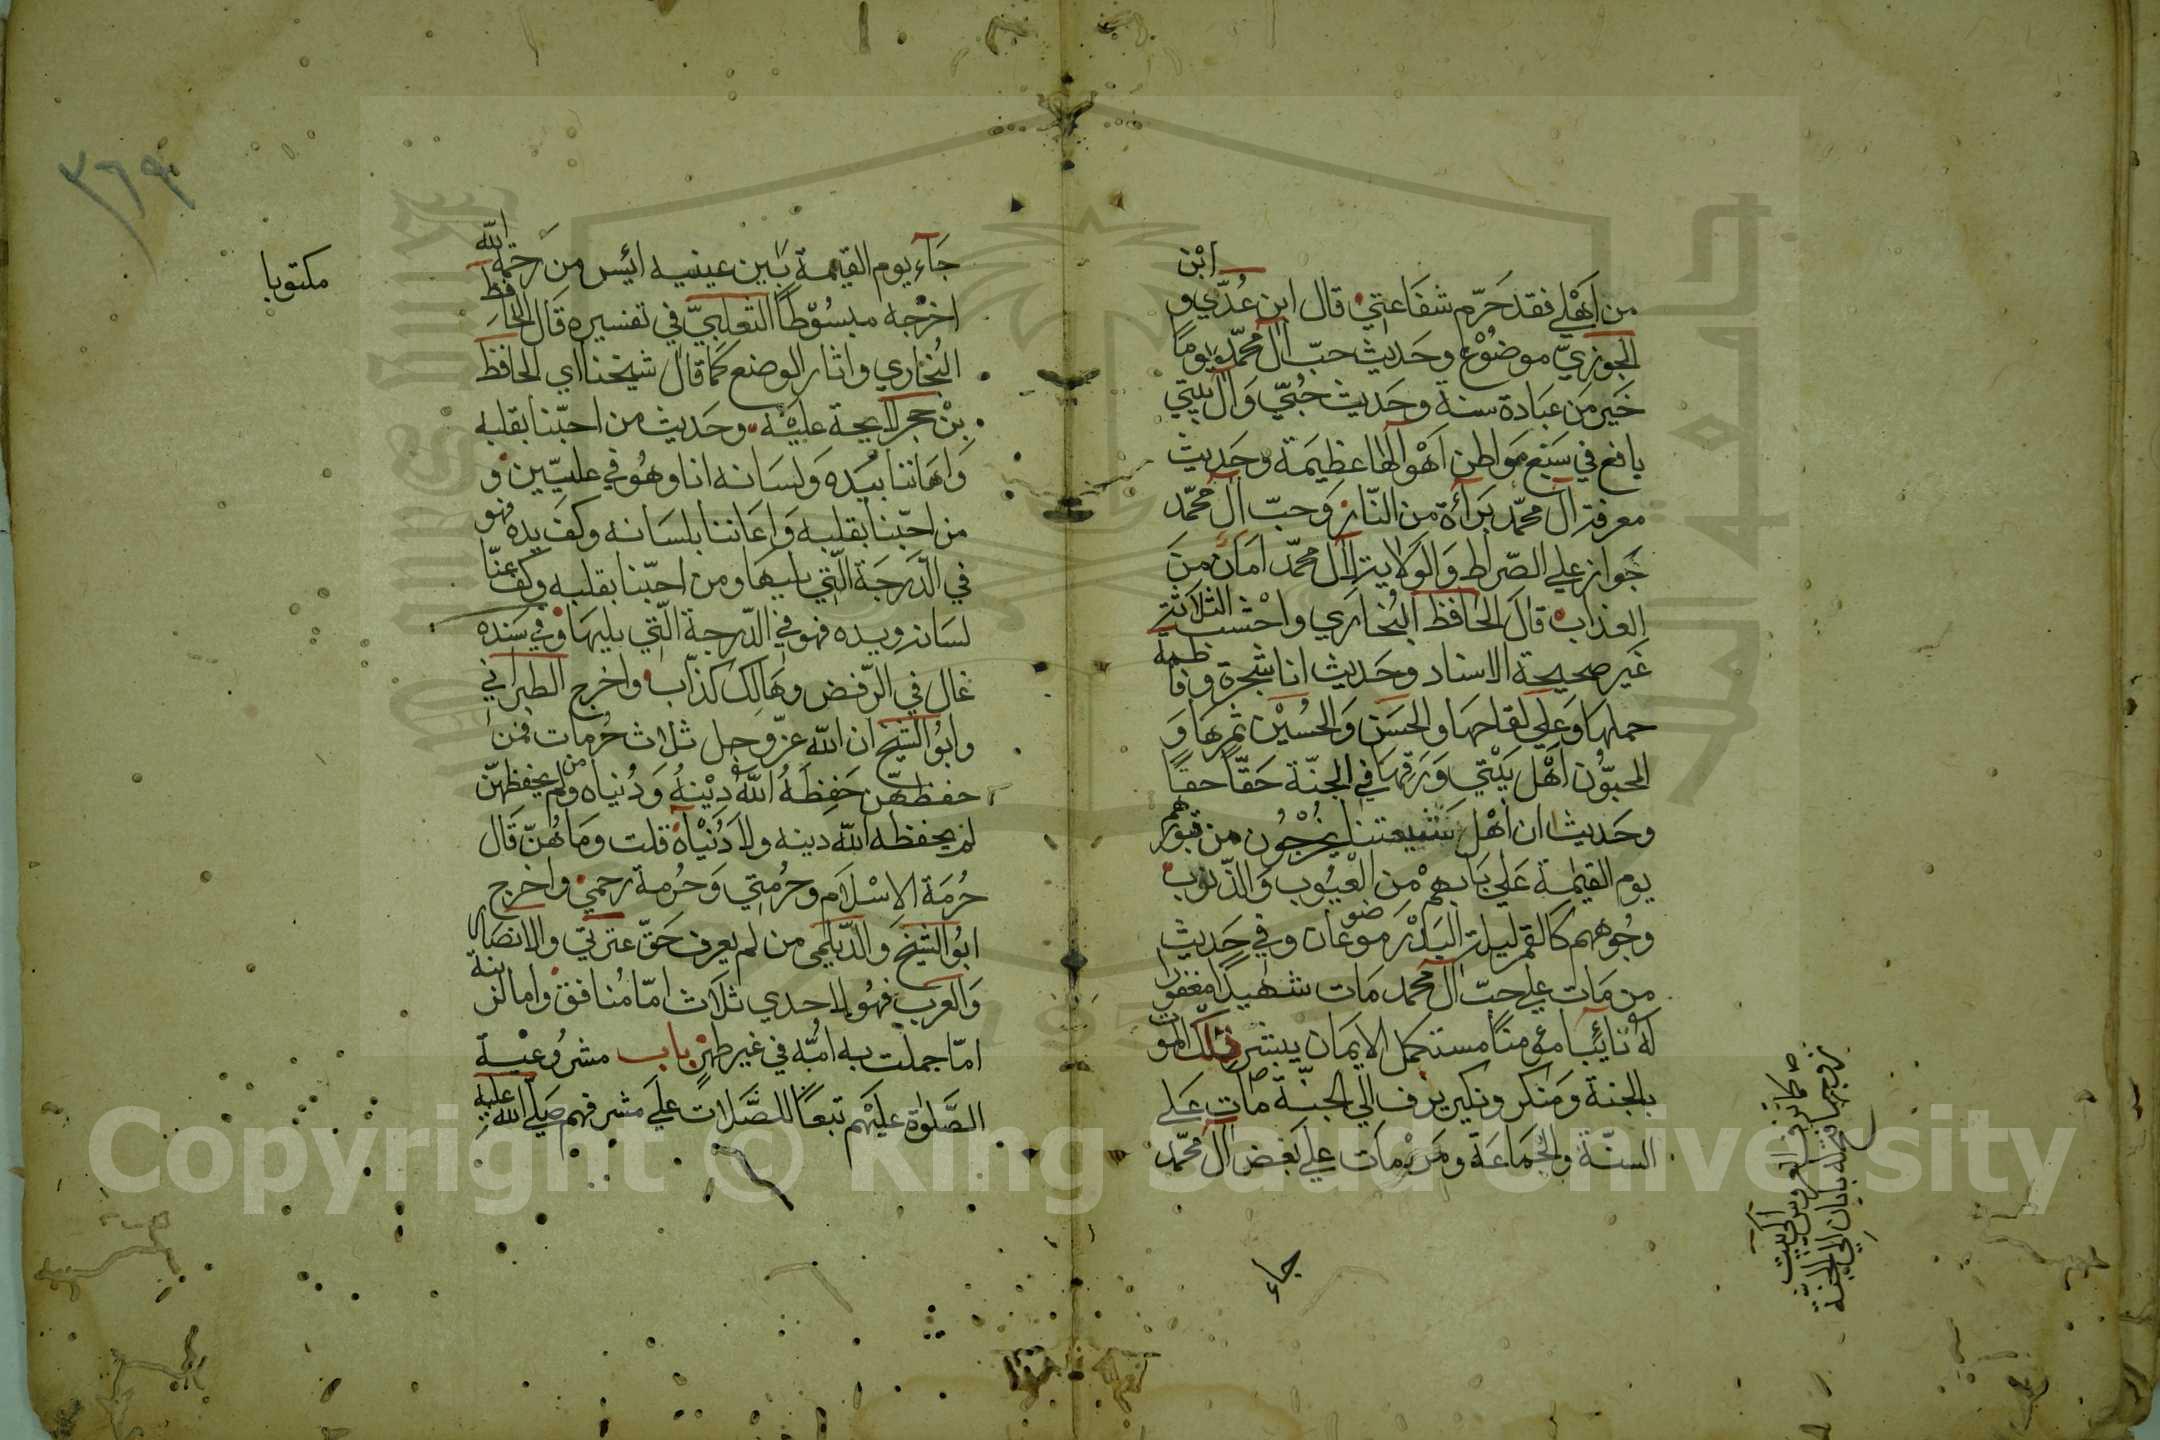 ابن
من اهلي فقد حَرّم شفاعتي قال ابن عُدّي و
الجوزيّ موضوع وحديث حبّ آل محمّد يوما
خير من عبادة سنة وحديث حُبّي وآل بيتي
نافع في سَبع مواطن اهوالها عظيمة وحديث
معرفة آل محمّد برآءة من النّار وحبّ آل محمّد
جواز على الصّراط والولاية لآل محمّد امان من
العذاب قال الحافظ البُخاري واحسب الثلاثة
غير صحيحة الاسناد وحديث انا شجرة وفاطمة
حملها وعلي لقاحها والحسن والحُسين ثمرها و
المحبّون اهل بيتي ورقها في الجنّة حقّا حقا
وحديث ان اهل شيعتنا يخرُجُون من قبورهم
يوم القيمة على ما بهم من العُيُوب والذّنوب
وجُوههم كالقمر ليلة البدر موضوعان وفي حديث
من مات على حبّ آل محمد مات شهيدا مغفورا
له تائبا مؤمنا مستكمل الايمان يبشره ملك الموت
بالجنة ومنكر ونكير يزف الى الجنّة مات على
السنّة والجماعة ومن مات على بغض آل محمّد
جاء
كما تزف العروس الى بيت
زوجها فتح له بابان الى الجنّة
٣٦٩
جآء يوم القيمة بين عينيه ائيس من رحمة الله
اخرجه مبسُوْطا الثعلبيّ في تفسيره قال الحافظ
البُخاري واثار الوضع كما قال شيخنا اي الحافظ
بن حجر لايحة عليه وحديث من احبّنا بقلبه
واعاننا بيده ولسانه انا وهُو في عليّين و
من احبّنا بقلبه واعاننا بلسانه وكف يده فهو
في الدّرجة الّتي يليها ومن احبّنا بقلبه وكف عنّا
لسانه ويده فهو في الدّرجة الّتي يليها وفي سنده
غال في الرّفض وهالك كذّاب واخرج الطبراني
وابو الشّيخ ان الله عزّ وجل ثلاث حُرمات فمن
حفظهنّ حَفِظَهُ اللهُ دِيْنهُ ودُنياه ومن لم يحفظهنّ
لم يحفظه الله دينه ولا دُنْياه قلت وما هُنّ قال
حُرمَة الاسْلام وحُرمتي وحُرمة رحمي واخرج
ابُو الشّيخ والدّيلمي من لم يعرف حقّ عترتي والانصار
والعرب فهُو لاحدي ثلاث امّا مُنافق واما لزنية
امّا حملت به امُّه في غير طهر باب مشرُوعيّة
الصّلوة عليهم تبعًا للصّلات على مشرفهم صلى الله عليه
مكتوبا